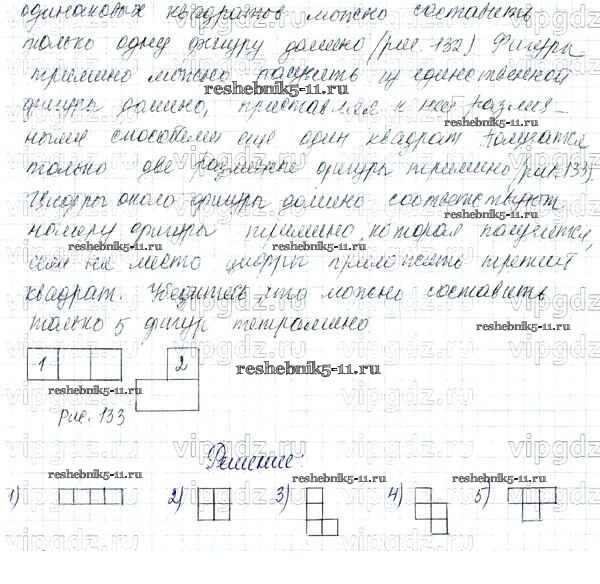 одинаковых квадратов можно составить
только одну фигуру домино (рис. 132) Фигуры
тримино можно получить из единственной
фигуры домино, приставляя к ней различ-
ными способами еще один квадрат получатся
только две различные фигуры тримино (рис. 133)
Цифры около фигуры домино соответствуют
номеру фигуры тримино, которая получается,
если на место цифры приложить третий
квадрат. Убедитесь, что можно составить
только 5 фигур тетрамино
1 2
Рис. 133
Решение:
1) 2) 3) 4) 5)
reshebnik5-11.ru
vipgdz.ru